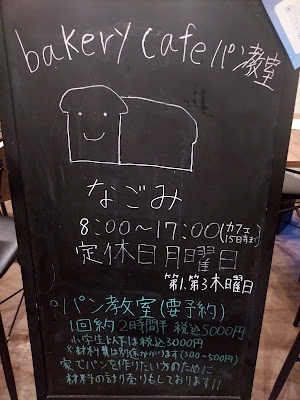 bakery cafe パン教室
なごみ
8:00〜17:00(カフェ15時まで)
定休日月曜日
第1.第3木曜日
パン教室(要予約)
1回約2時間半 税込5000円
小学生以下は税込3000円
※材料費は別途かかります(300〜500円)
家でパンを作りたい方のために
材料の計り売りもしております!!